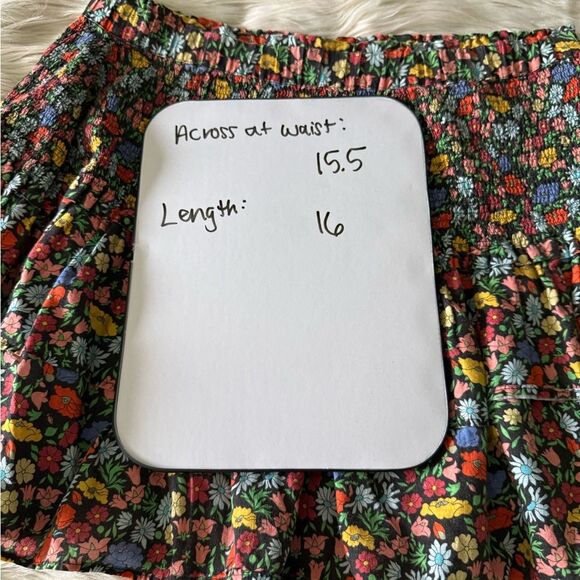 Across at waist:
15.5
Length:
16